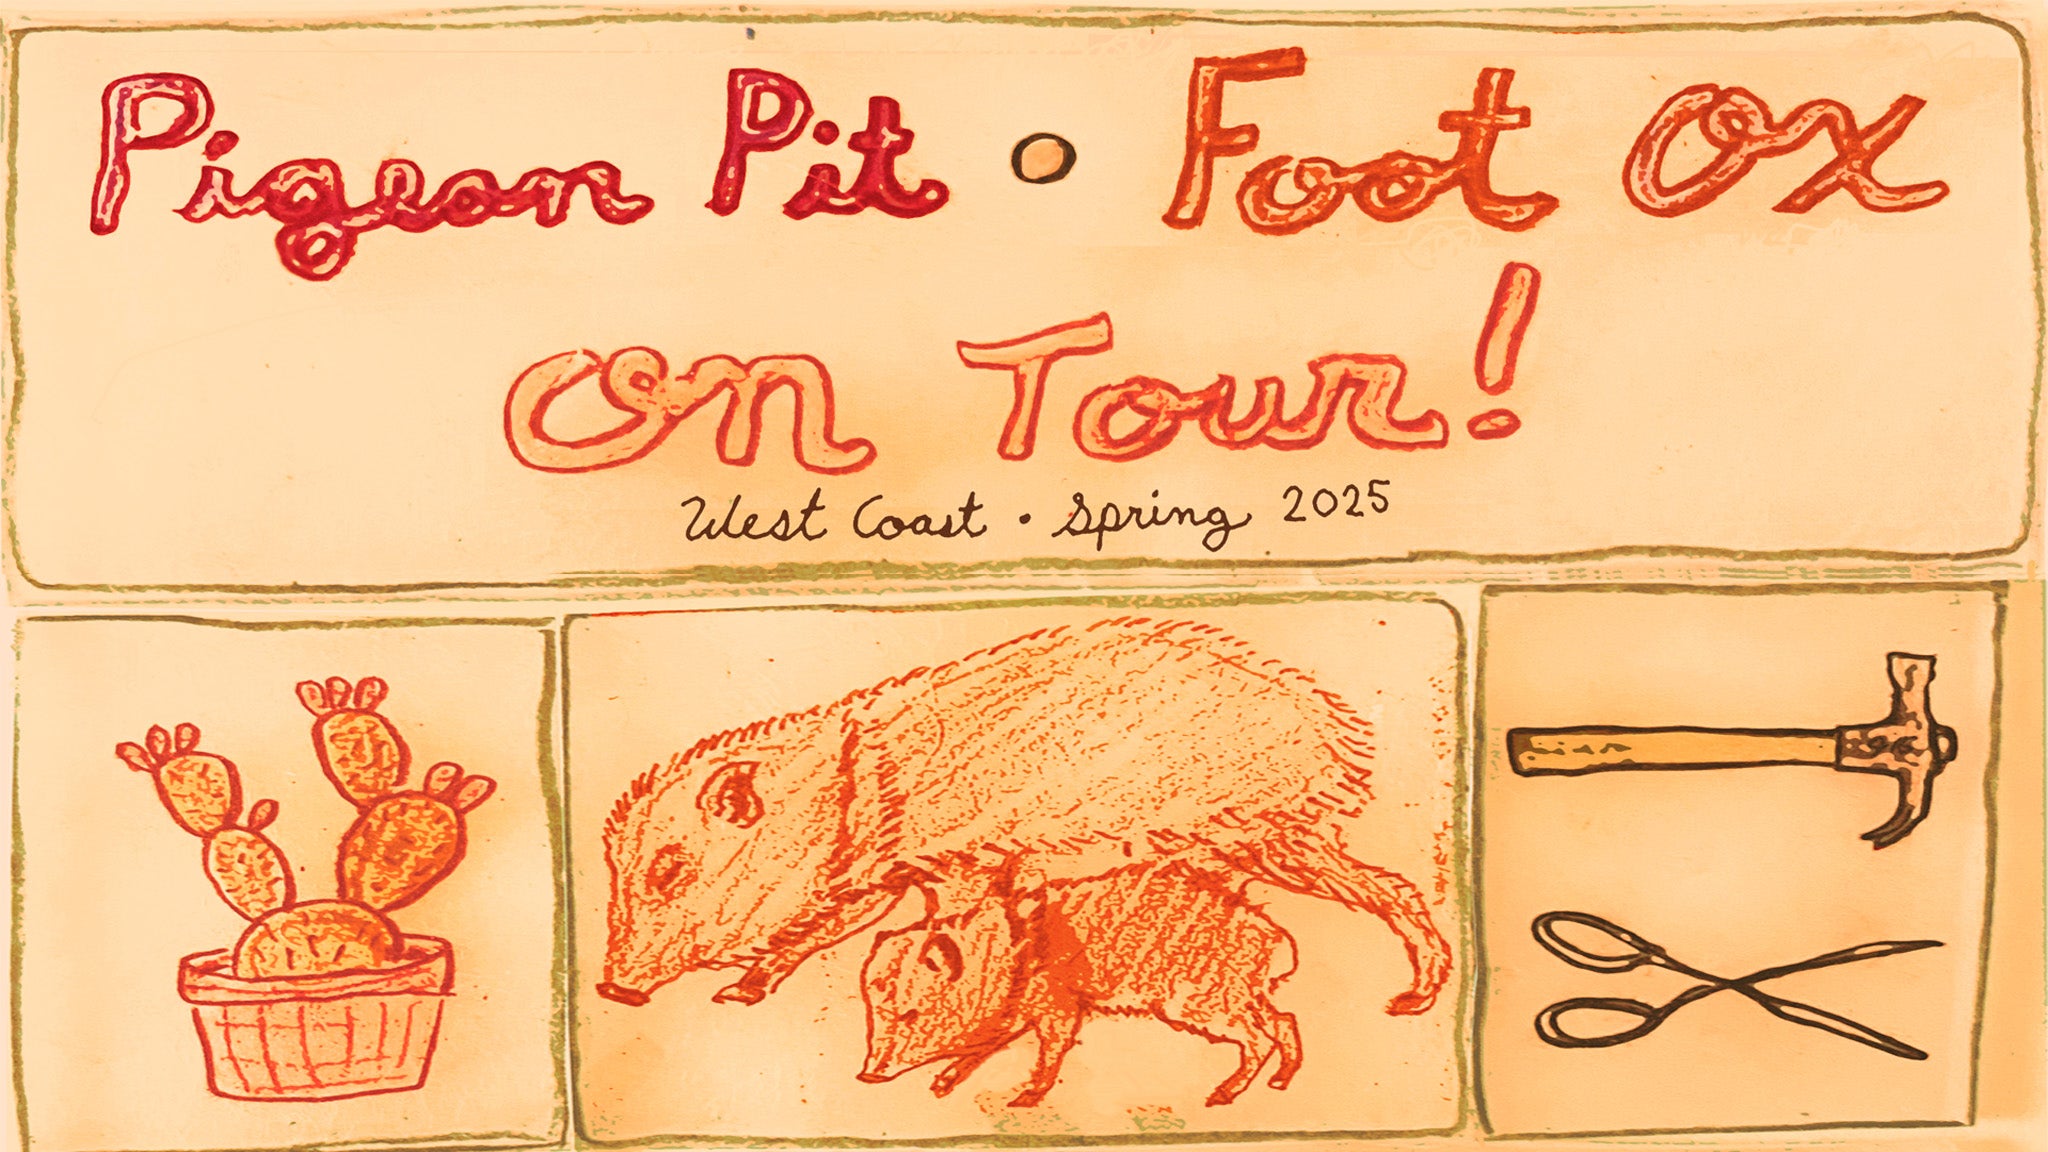 Pigeon Pit • Foot Ox
On Tour!
West Coast • Spring 2025